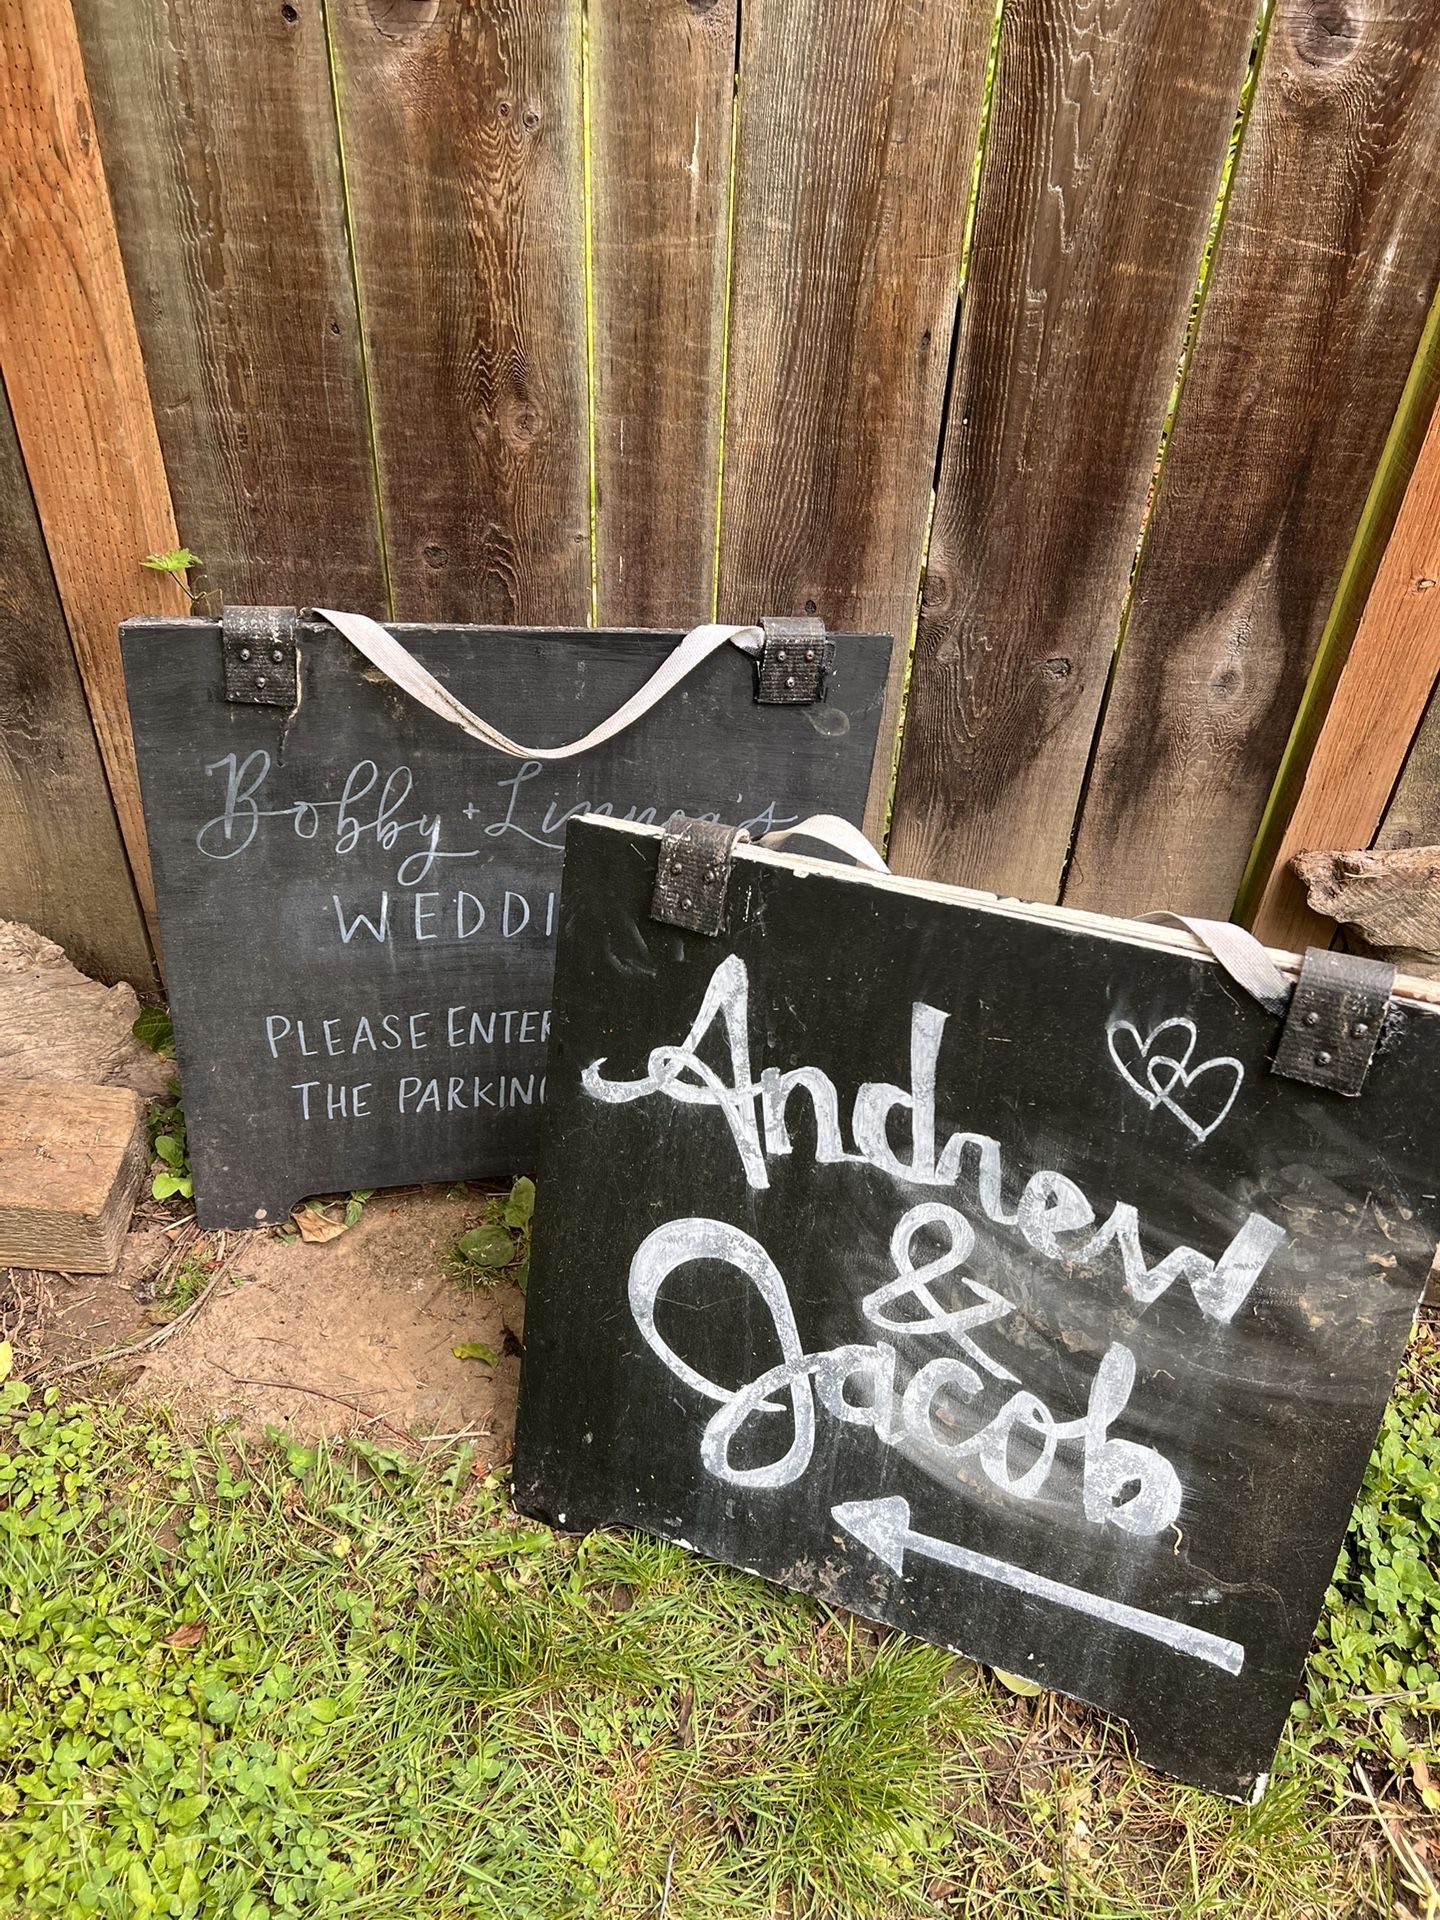 Bobby + Linnea's
WEDDI
PLEASE ENTER
THE PARKIN
Andrew
&
Jacob